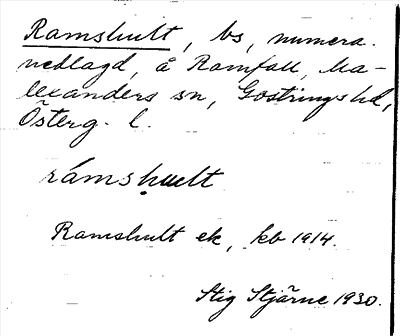 Ramshult, bs, numera
nedlagd, å Ramfall, Ma-
lexanders sn, Göstrings hd,
Österg. l.
ramshult
Ramshult ek, kb 1914.
Stig Stjärne 1930.